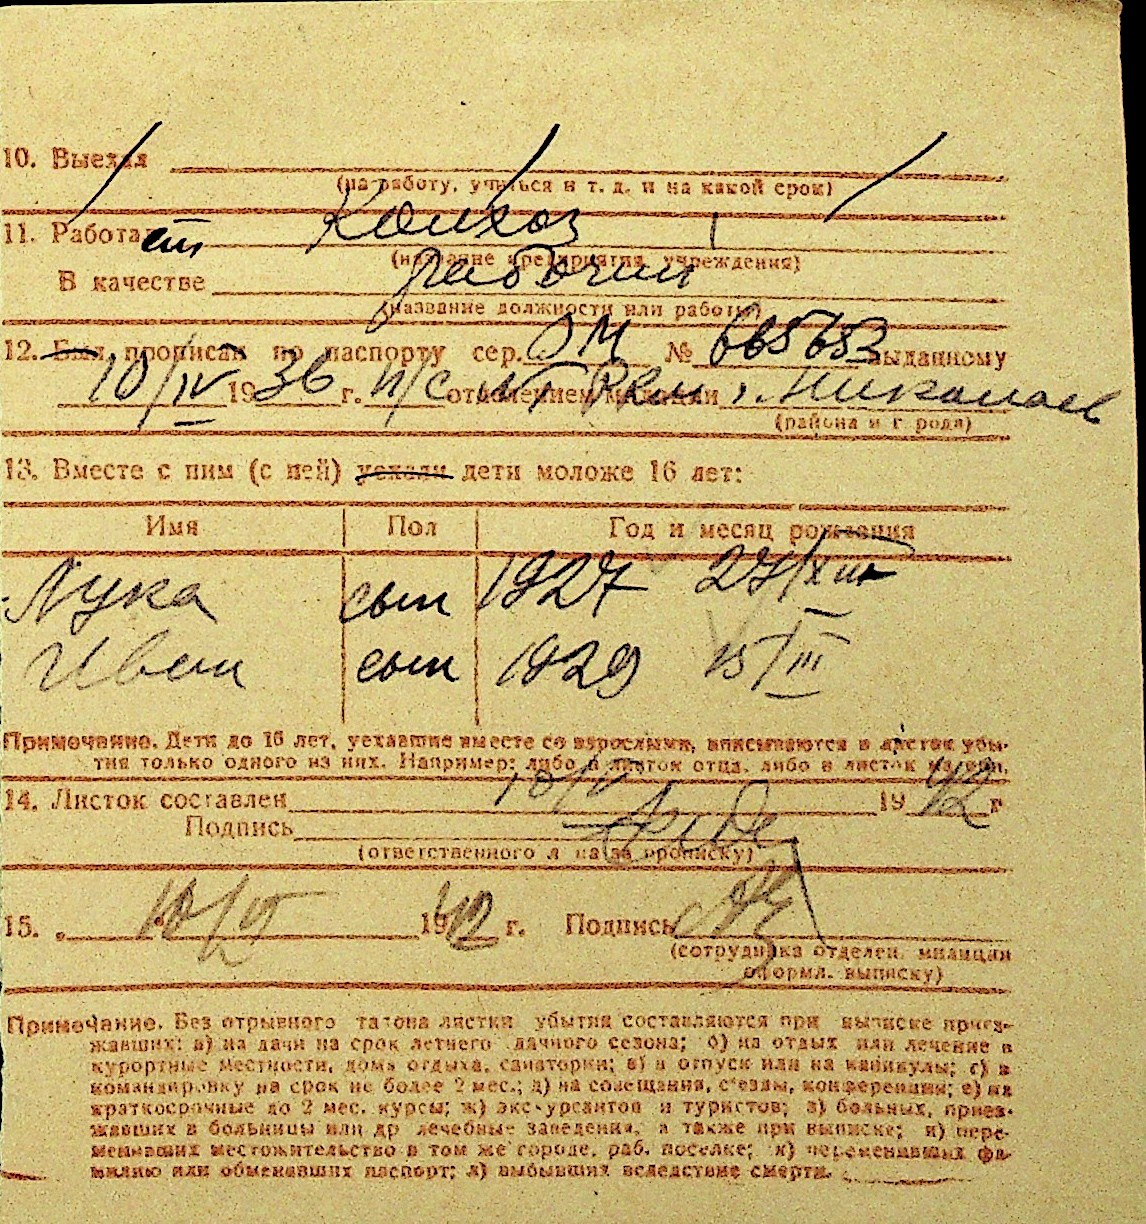 10. Выехал
(на работу, учиться и т. д. и на какой срок)
11. Работает Колхоз
(название предприятия, учреждения)
В качестве рабочий
(название должности или работы)
12. Был прописан по паспорту сер. ОМ № 665653 выданному
10/IV 1936 г. н/с отделением милиции г. Николаев
(района и города)
13. Вместе с ним (с ней) уехали дети моложе 16 лет:
Имя Пол Год и месяц рождения
Лука сын 1927
Иван сын 1929 15/III
Примечание. Дети до 16 лет, уехавшие вместе со взрослыми, вписываются в листок убы-
тия только одного из них. Например: либо в листок отца, либо в листок матери.
14. Листок составлен 10/V 1942 г
Подпись
(ответственного л на за прописку)
15. 10/VI 1942 г. Подпись
(сотрудника отделен. милиции
оформл. выписку)
Примечание. Без отрывного талона листки убытия составляются при выписке приез-
жавших: а) на дачи на срок летнего дачного сезона; б) на отдых или лечение в
курортные местности, дома отдыха, санатории; в) в отпуск или на каникулы; г) в
командировку на срок не более 2 мес.; д) на совещания, с'езды, конференции; е) на
краткосрочные до 2 мес. курсы; ж) экскурсантов и туристов; з) больных, приез-
жавших в больницы или др лечебные заведения, а также при выписке; и) пере-
менивших местожительство в том же городе, раб. поселке; к) переменивших фа-
милию или обменявших паспорт; л) выбывших вследствие смерти.